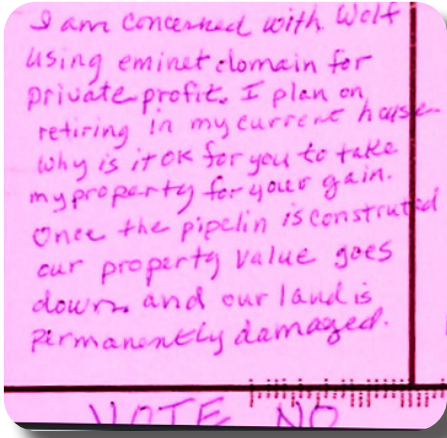 I am concerned with Wolf
using eminet domain for
private profit. I plan on
retiring in my current house
Why is it OK for you to take
my property for your gain.
Once the pipelin is construted
our property value goes
down and our land is
permanently damaged.
VOTE NO